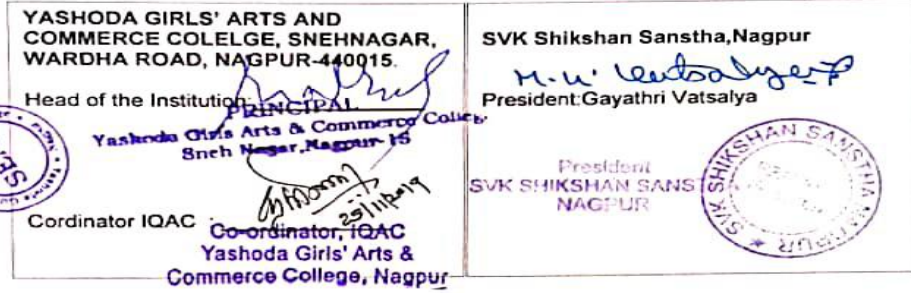 YASHODA GIRLS' ARTS AND
COMMERCE COLELGE, SNEHNAGAR,
WARDHA ROAD, NAGPUR-440015.
Head of the Institution:
PRINCIPAL
Yashoda Girls Arts & Commerce College
Sneh Nagar, Nagpur-15
25/11/2019
Cordinator IQAC :
Co-ordinator, IQAC
Yashoda Girls' Arts &
Commerce College, Nagpur
SVK Shikshan Sanstha,Nagpur
President:Gayathri Vatsalya
President
SVK SHIKSHAN SANS
NAGPUR
SVK SHIKSHAN SANSTHA NAGPUR